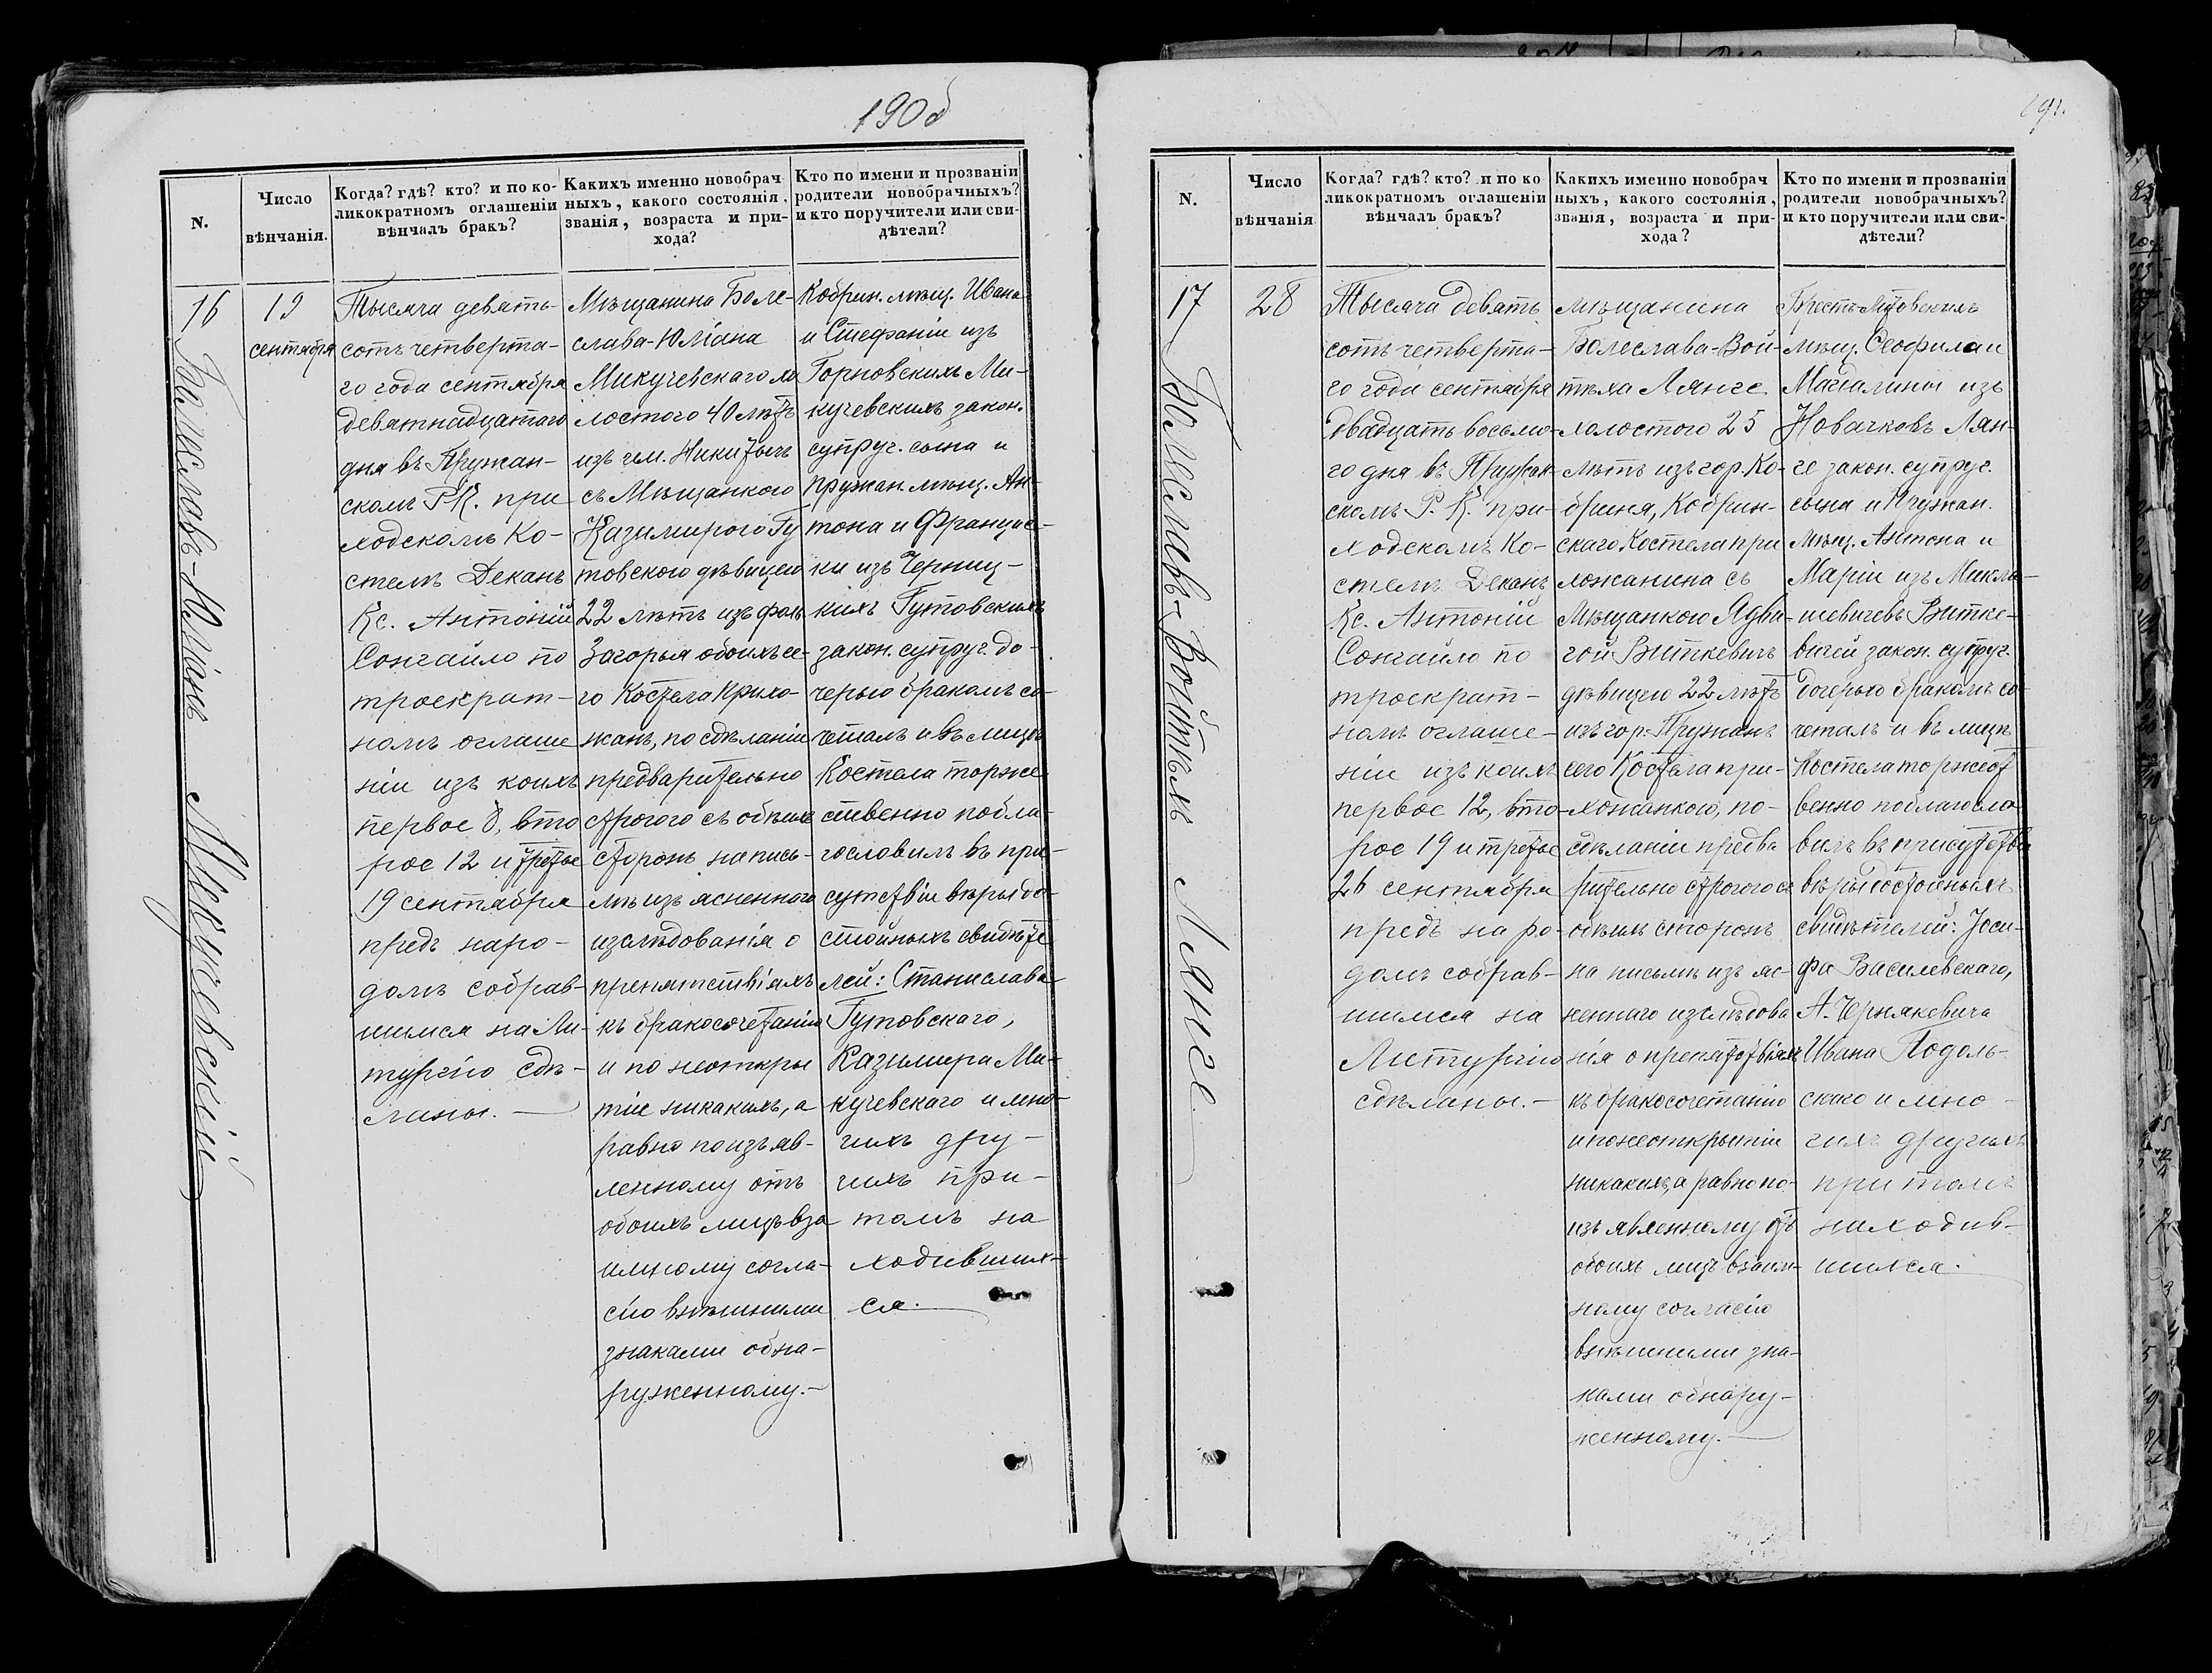 190б
N.
Число
вѣнчанія.
Когда? гдѣ? кто? и по ко-
ликократномъ оглашеніи
вѣнчалъ бракъ?
Какихъ именно новобрач
ныхъ, какого состоянія,
званія, возраста и при-
хода?
Кто по имени и прозваніи
родители новобрачныхъ?
и кто поручители или сви-
дѣтели?
16
Болеславъ-Юліанъ Микучевскій
19
сентября
Тысяча девять-
сотъ четверта-
го года сентября
девятнадцатаго
дня въ Пружан-
скомъ Р.К. при
ходскомъ Ко-
стелѣ Деканъ
Кс. Антоній
Сонгайло по
троекрат-
номъ оглаше
ніи изъ коихъ
первое 8, вто
рое 12 и третье
19 сентября
предъ наро-
домъ собрав-
шимся на Ли-
тургію сдѣ-
ланы.
Мѣщанина Боле-
слава-Юліана
Микучевскаго хо
лостого 40 лѣтъ
изъ
съ Мѣщанкою
Казимирою Гу
товскою дѣвицею
22 лѣтъ изъ фоль
Загорья обоихъ се-
го Костела Прихо-
жанъ, по сдѣланіи
предварительно
строгого съ обѣихъ
сторонъ на пись-
мѣ изъясненнаго
изслѣдованія о
препятствіяхъ
къ бракосочетанію
и по неоткры
тіи никакихъ, а
равно по изъяв-
ленному отъ
обоихъ лицъ вза
имному согла-
сію внѣшними
знаками обна-
руженному.
Кобрин. мѣщ. Ивана
и Стефаніи изъ
Горновскихъ Ми-
кучевскихъ закон.
супруг. сына и
Пружан. мѣщ. Ан-
тона и Францис-
ки изъ Черниц-
кихъ Гутовскихъ
закон. супруг. до-
черью бракомъ со-
четалъ и въ лицѣ
Костела торже-
ственно побла-
гословилъ въ при-
сутствіи вѣрыдо-
стойныхъ свидѣте
лей: Станислава
Гутовскаго,
Казимира Ми-
кучевскаго и мно-
гихъ дру-
гихъ при-
томъ на
ходивших-
ся.
191.
N.
Число
вѣнчанія
Когда? гдѣ? кто? и по ко
ликократномъ оглашеніи
вѣнчалъ бракъ?
Какихъ именно новобрач
ныхъ, какого состоянія,
званія, возраста и при-
хода?
Кто по имени и прозваніи
родители новобрачныхъ?
и кто поручители или сви-
дѣтели?
17
Болеславъ-Войтѣхъ Лянге
28
Тысяча девять
сотъ четверта-
го года сентября
двадцать восьмо-
го дня въ Пружан-
скомъ Р. К. при-
ходскомъ Ко-
стелѣ Деканъ
Кс. Антоній
Сонгайло по
троекрат-
номъ оглаше-
ніи изъ коихъ
первое 12, вто-
рое 19 и третье
26 сентября
предъ наро-
домъ собрав-
шимся на
Литургію
сдѣланы.
мѣщанина
Болеслава-Вой-
тѣха Лянге
холостого 25
лѣтъ изъ гор. Ко-
брина, Кобрин-
скаго Костела при
хожанина съ
Мѣщанкою Ядви-
гой Виткевичъ
дѣвицею 22 лѣтъ
изъ гор. Пружанъ
сего Костела при-
хожанкою, по-
сдѣланіи предва
рительно строгого съ
обѣихъ сторонъ
на письмѣ изъяс-
неннаго изслѣдова
нія о препятствіяхъ
къ бракосочетанію
и по неоткрытіи
никакихъ, а равно по-
изъявленному отъ
обоихъ лицъ взаим-
ному согласію
внѣшними зна-
ками обнару-
женному.
Брестъ-Литовскихъ
мѣщ. Феофила и
Магдалины изъ
Новачковъ Лян-
ге закон. супруг.
сына и Пружан.
мѣщ. Антона и
Маріи изъ Микла-
шевичевъ Витке-
вичей закон. супруг.
дочерью бракомъ со-
четалъ и въ лицѣ
Костела торжест
венно поблагосло-
вилъ въ присутствіи
вѣрыдостойныхъ
свидѣтелей: Іоси-
фа Василевскаго,
А. Чернякевича
Ивана Подоль-
скаго и мно-
гихъ другихъ
при томъ
находив-
шихся.